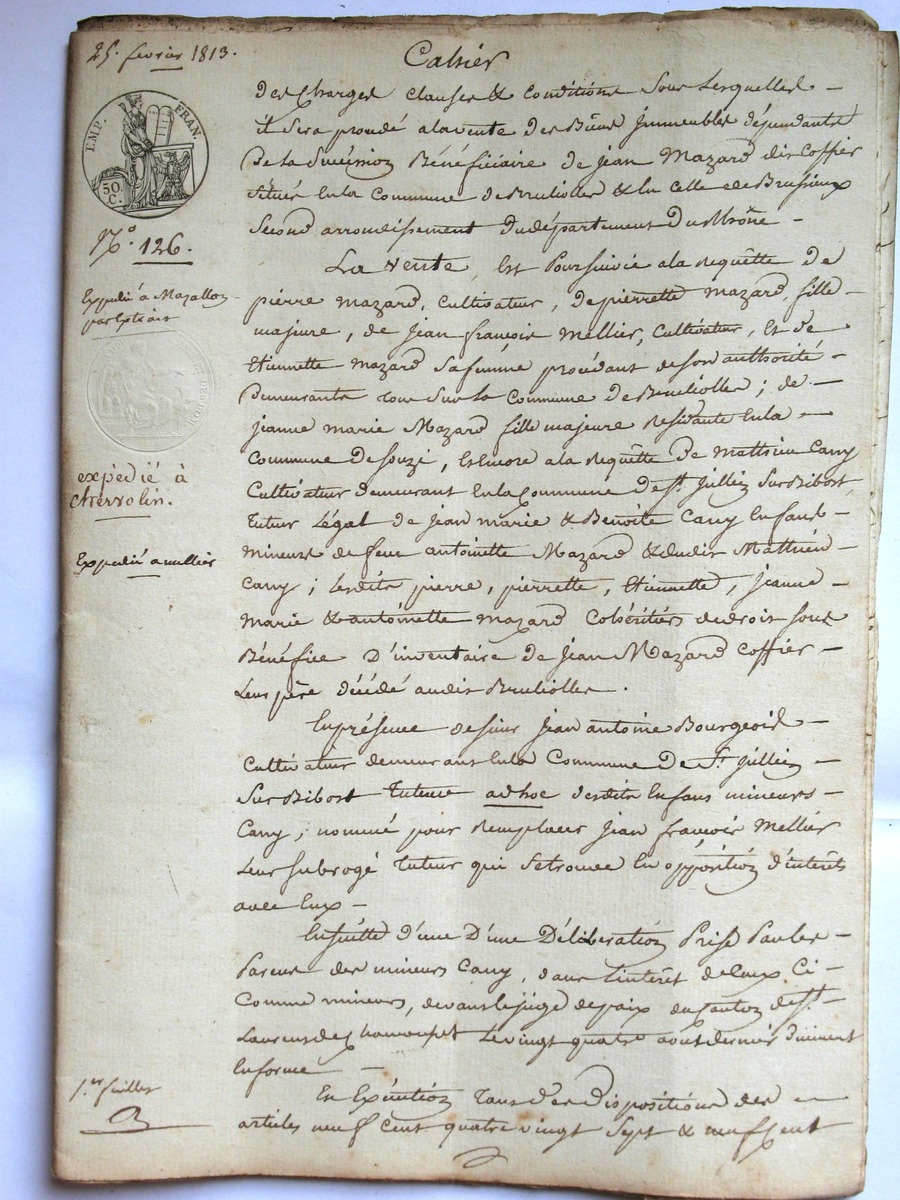 25. fevrier 1813.
EMP. FRAN.
50. C.
N.° 126.
Expedié à Mazallon
par Extrait
expèdié à
Expedié a mellier
1.er feuillet
Cahier
des Charges clauses & conditions Sous Lesquelles
il Sera procedé a la vente des Biens Immeubles dépendants
De la Succession Bénéficiaire de Jean Mazard dit Coffier
Situés En la Commune de Brulliolles & En Celle de Brussieux
Second arrondissement du département du Rhône
La vente, Est Poursuivie a la Requête de
pierre mazard, Cultivateur, De pierrette mazard fille
majeure, de Jean françois Mellier, Cultivateur, Et de
Etiennette mazard Sa femme procédant de Son authorité
Demeurants tous Sur la Commune De Brulliolles; de
Jeanne marie Mazard fille majeure Residante En la
Commune de Souzi, Et Encore a la Requête De Matthieu Cany
Cultivateur demeurant En la Commune de St. Jullien Sur Bibost,
tuteur Légal de Jean marie & Benoîte Cany Enfans
mineurs de feue antoinette Mazard & dudit Matthieu
Cany; Lesdits pierre, pierrette, Etiennette, Jeanne
Marie & antoinette mazard Cohéritiers de droit Sous
Bénéfice D'inventaire de Jean Mazard Coffier
Leur père décédé audit Brulliolles.
En présence de Sieur Jean antoine Bourgeois
Cultivateur demeurant En la Commune De St. Jullien
Sur Bibost Tuteur ad hoc desdits Enfans mineurs
Cany, nommé pour Remplacer Jean françois Mellier
Leur Subrogé Tuteur qui Se trouve En opposition d'intérêts
avec Eux
En Suitte d'une D'une Déliberation Prise Par les
Parens des mineurs Cany, dans L'intérêt de Ceux Ci
Comme mineurs, devant le juge de paix du Canton de St.
Laurent de Chamousset Le vingt quatre aoust dernier duement
En forme
En Exécution Tant des Dispositions des
articles neuf Cent quatre vingt Sept & neuf Cent